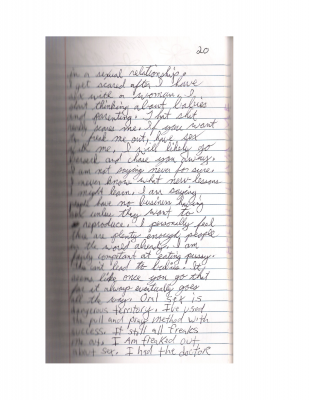 20
in a sexual relationship.
I get scared after I have
sex with a woman. I
start thinking about babies
and parenting. That shit
really scares me. If you want
to freak me out, have sex
with me. I will likely go
berserk and chase you away.
I am not saying never for sure.
I never know what new lessons
I might learn. I am saying
people have no business having
sex unless they want to
reproduce. I personally feel
there are plenty enough people
in the world already. I am
fairly competent at eating pussy.
This will lead to babies. It
seems like once you go that
far it always eventually goes
all the way. Oral sex is
dangerous territory. I've used
the pull and pray method with
success. It still all freaks
me out. I am freaked out
about sex. I had the doctor